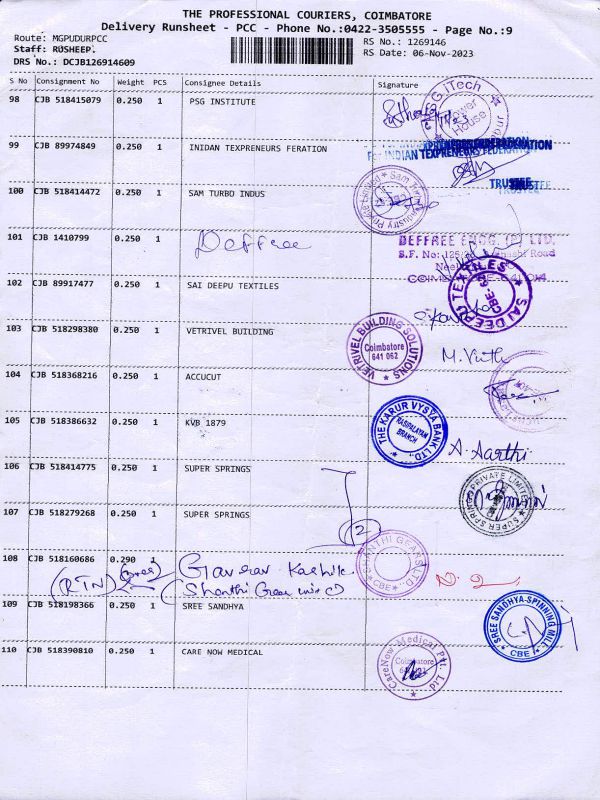 THE PROFESSIONAL COURIERS, COIMBATORE
Delivery Runsheet - PCC - Phone No.:0422-3505555 - Page No.:9
Route: MGPUDURPCC
RS No.: 1269146
Staff: RUSHEEP.
RS Date: 06-Nov-2023
DRS No.: DCJB126914609
S No Consignment No Weight PCS Consignee Details Signature
98 CJB 518415079 >0.250 1 PSG INSTITUTE
PSG iTech
Power
House
99 CJB 89974849 0.250 1 INIDAN TEXPRENEURS FERATION
For INDIAN TEXPRENEURS FEDERATION
TRUSTEE
100 CJB 518414472 0.250 1 SAM TURBO INDUS
101 CJB 1410799 0.250 1 Deffree
DEFFREE ENGG. (P) LTD.
102 CJB 89917477 0.250 1 SAI DEEPU TEXTILES
SAI DEEPU TEXTILES
CBE-62
103 CJB 518298380 0.250 1 VETRIVEL BUILDING
VETRIVEL BUILDING SOLUTIONS
Coimbatore
641 062
104 CJB 518368216 0.250 1 ACCUCUT
105 CJB 518386632 0.250 1 KVB 1879
THE KARUR VYSYA BANK LTD.,
RASIPALAYAM
BRANCH
A. Aarthi
106 CJB 518414775 0.250 1 SUPER SPRINGS
SUPER SPRINGS PRIVATE LIMITED
107 CJB 518279268 0.250 1 SUPER SPRINGS
2
108 CJB 518160686 0.290 1 Gaurav Kashik
(RTN)
(Shanthi Gear unit
SHANTHI GEARS LTD
CBE
109 CJB 518198366 0.250 1 SREE SANDHYA
SREE SANDHYA SPINNING MILL
CBE
110 CJB 518390810 0.250 1 CARE NOW MEDICAL
CareNow Medical Pvt. Ltd
Coimbatore